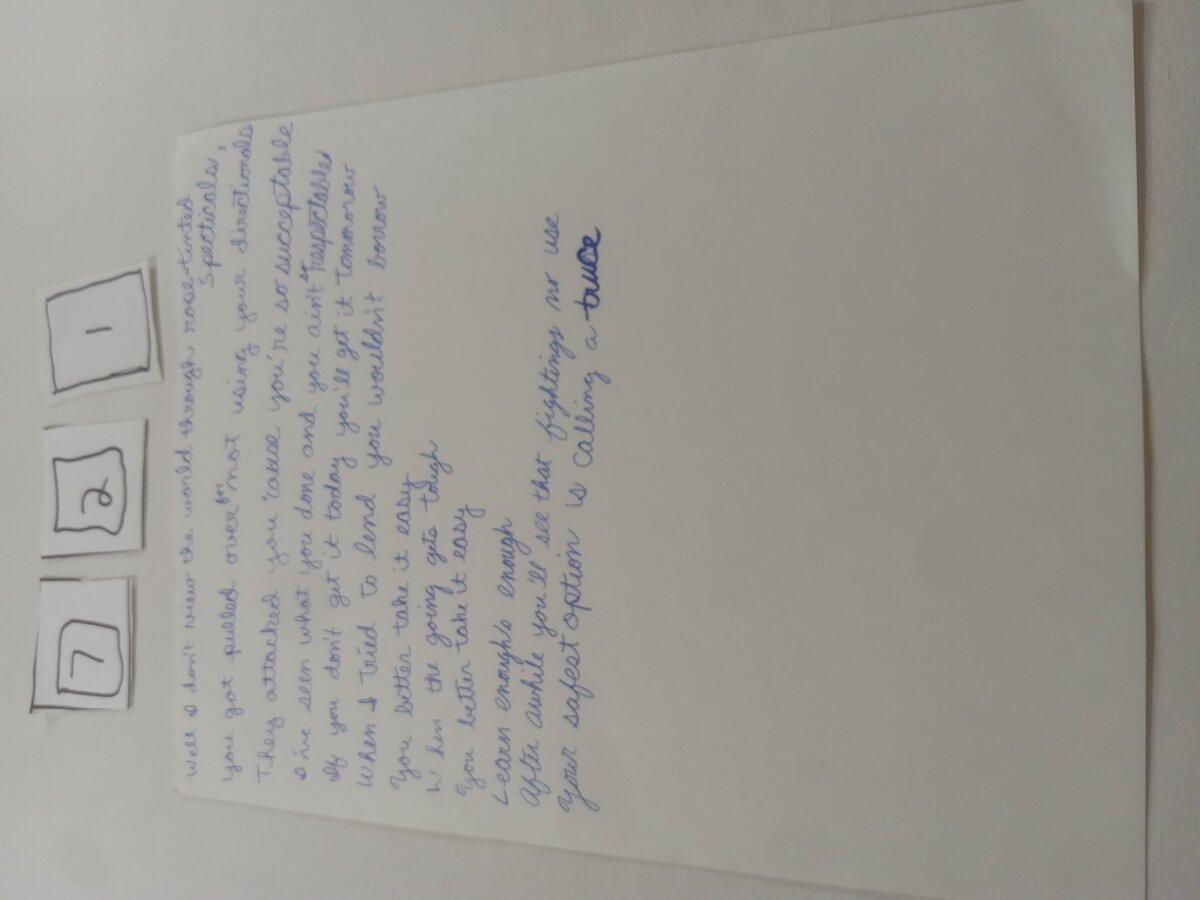 7 2 1
Well I don't view the world through rose-tinted
specticals,
you got pulled over for not using your directionals
They attacked you 'cause you're so succeptable
I've seen what you done and you ain't so respectable
If you don't get it today you'll get it tommorow
When I tried to lend you wouldn't borrow
You better take it easy
When the going gets tough
You better take it easy
Learn enough's enough
After awhile you'll see that fightings no use
Your safest option is calling a truce